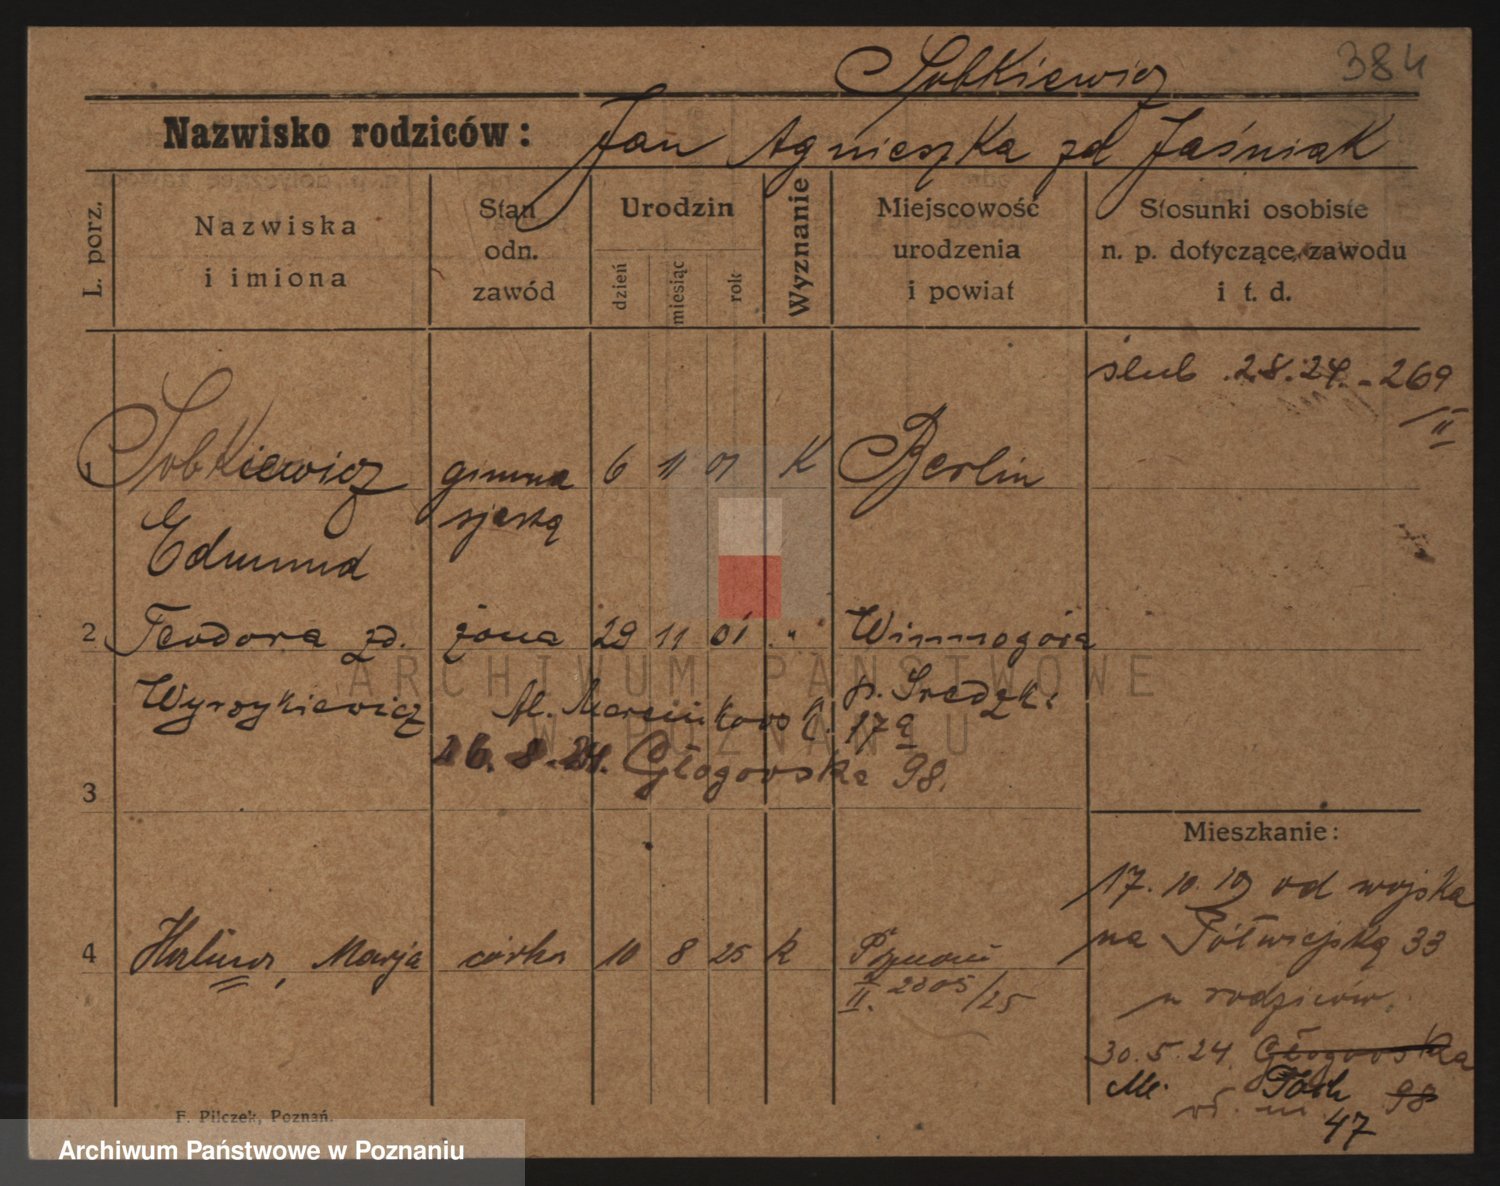 384
Sobkiewicz
Nazwisko rodziców: Jan Agnieszka zd Jaśniak
L. porz.
Nazwiska
i imiona
Stan
odn.
zawód
Urodzin
dzień
miesiąc
rok
Wyznanie
Miejscowość
urodzenia
i powiat
Stosunki osobiste
n. p. dotyczące zawodu
i t. d.
ślub 2.8.24. - 269
II
1 Sobkiewicz gimna 6 11 01 K Berlin
Edmund
2 Teodora zd. żona 29 11 01 " Winnogóra
Wyrzykiewicz p. Średzki
Al. Marcinkowsk. 17a
26. 8. 24. Głogowska 98.
3
Mieszkanie:
17. 10. 19 od wojska
na Półwiejską 33
u rodziców.
4 Halina, Marja córka 10 8 25 k Poznań
II. 2305/25
30.5.24 Głogowska
98
47
F. Pilczek, Poznań.
ARCHIWUM PAŃSTWOWE
W POZNANIU
Archiwum Państwowe w Poznaniu